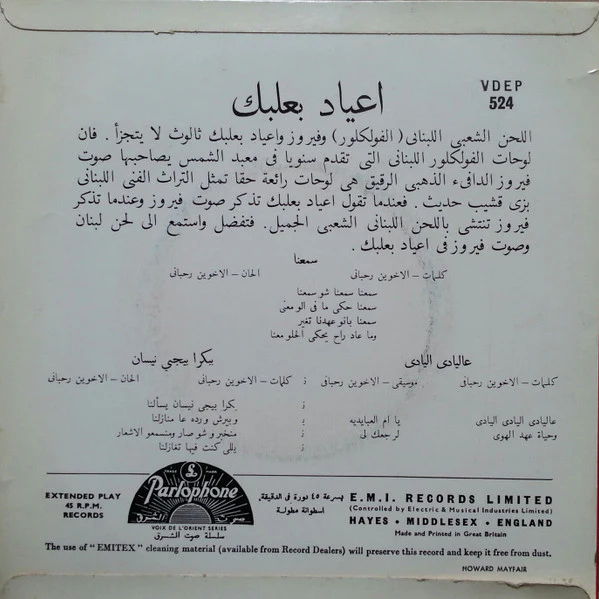 VDEP
524
اعياد بعلبك
اللحن الشعبى اللبنانى ( الفولكلور ) وفيروز واعياد بعلبك ثالوث لا يتجزأ . فان
لوحات الفولكلور اللبنانى التى تقدم سنويا فى معبد الشمس يصاحبها صوت
فيروز الدافىء الذهبى الرقيق هى لوحات رائعة حقا تمثل التراث الفنى اللبنانى
بزى قشيب حديث . فعندما تقول اعياد بعلبك تذكر صوت فيروز وعندما تذكر
فيروز تنتشى باللحن اللبنانى الشعبى الجميل. فتفضل واستمع الى لحن لبنان
وصوت فيروز فى اعياد بعلبك .
سمعنا
كلمات – الاخوين رحبانى الحان – الاخوين رحبانى
سمعنا سمعنا شو سمعنا
سمعنا حكى ما فى الو معنى
سمعنا بانو عهدنا تغير
وما عاد راح يحكى الحلو معنا
عاليادى اليادى
كلمات – الاخوين رحبانى موسيقى – الاخوين رحبانى
عاليادى اليادى اليادى يا ام العبايديه
وحياة عهد الهوى لرجعك لى
بيكرا بيجي نيسان
كلمات – الاخوين رحبانى الحان – الاخوين رحبانى
بكرا بيجى نيسان يسألنا
وبيرش ورده عا منازلنا
منخبر و شو صار ومنسمعو الاشعار
يللى كنت فيها تغازلنا
EXTENDED PLAY
45 R.P.M.
RECORDS
TRADE MARK
Parlophone
صوت الشرق
VOIX DE L'ORIENT SERIES
سلسلة صوت الشرق
بسرعة ٤٥ دورة فى الدقيقة
اسطوانة مطولة
E.M.I. RECORDS LIMITED
(Controlled by Electric & Musical Industries Limited)
HAYES • MIDDLESEX • ENGLAND
Made and Printed in Great Britain
The use of "EMITEX" cleaning material (available from Record Dealers) will preserve this record and keep it free from dust.
HOWARD MAYFAIR